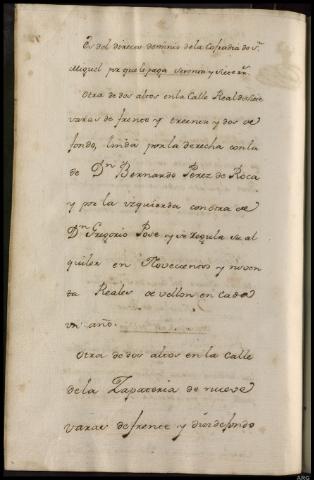 Es del directo dominio de la Cofradia de Sn.
Miguel pr. que le paga
Otra de dos altos en la Calle Real de siete
varas de frente y treinta y dos de
fondo, linda por la derecha con la
de Dn Bernardo Perez de Roca
y por la yzquierda con otra de
Dn Gregorio Pose y se regula su al
quiler en Novecientos y noven
ta Reales de vellon en cada
un año.
Otra de dos altos en la Calle
de la Zapateria de nueve
varas de frente y diez de fondo
ARG